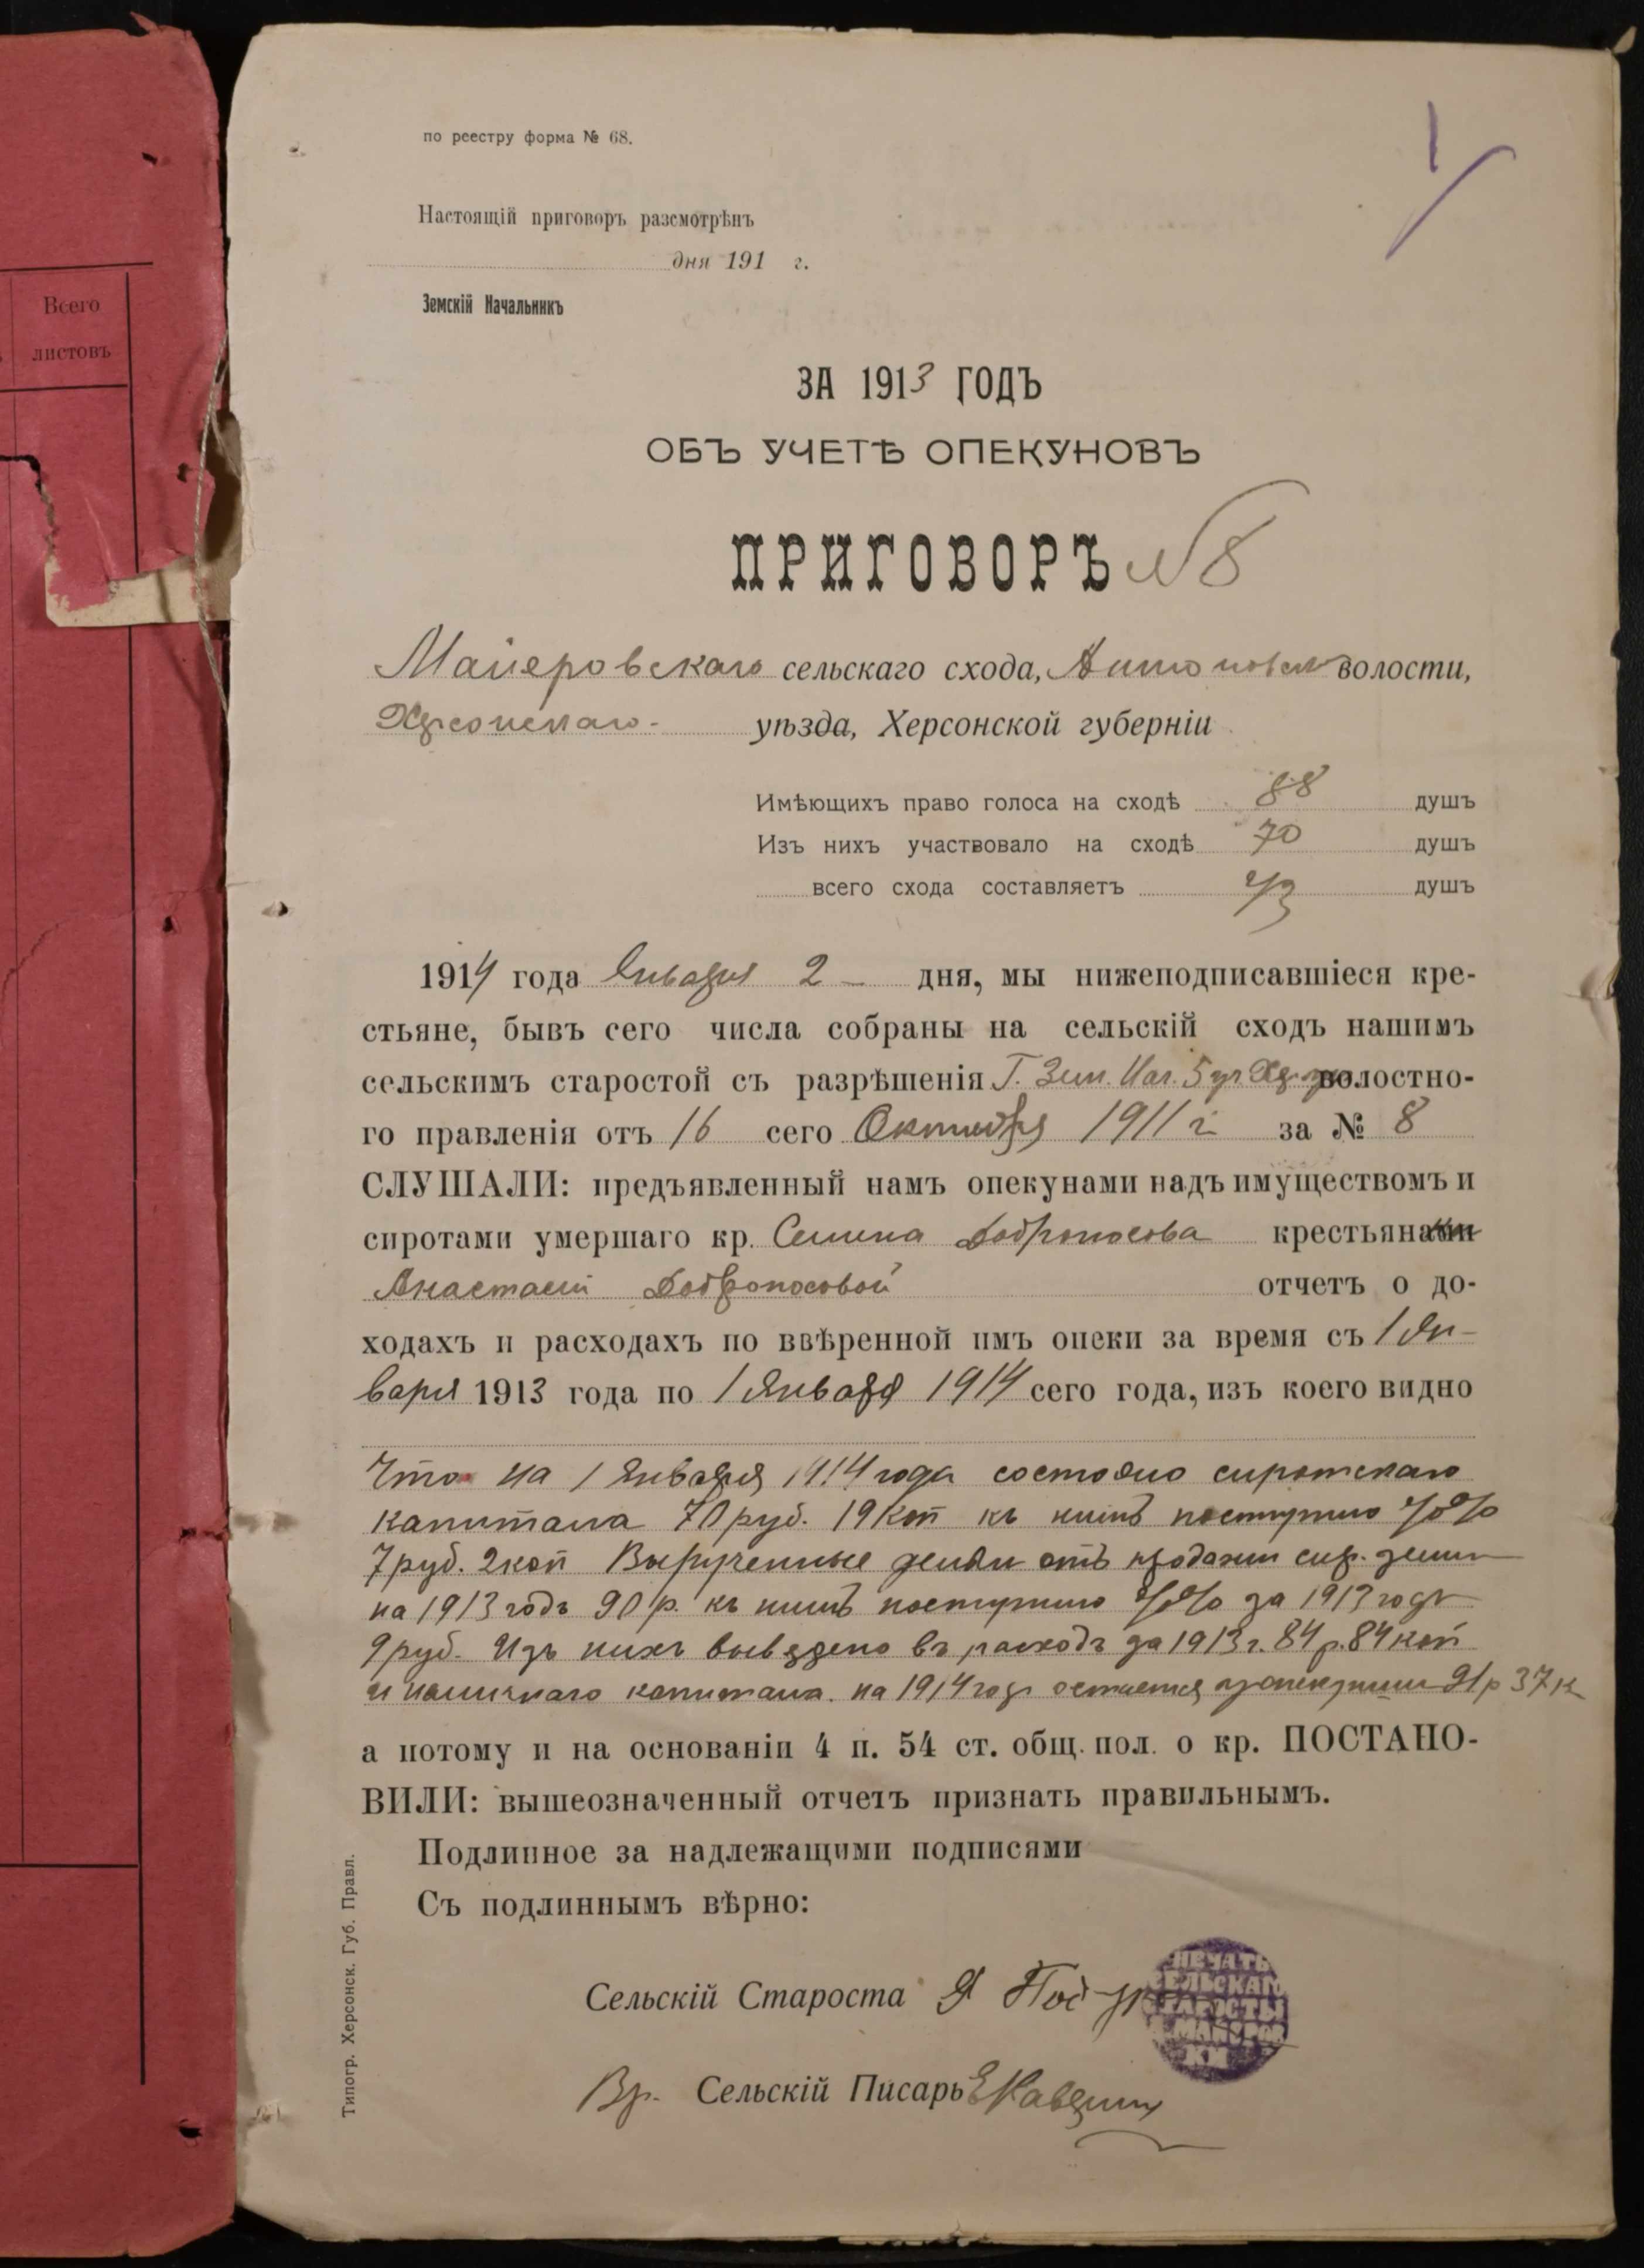 Всего
листовъ
по реестру форма № 68.
Настоящій приговоръ разсмотрѣнъ
дня 191 г.
Земскій Начальникъ
ЗА 1913 ГОДЪ
ОБЪ УЧЕТѢ ОПЕКУНОВЪ
ПРИГОВОРЪ №8
Маіеровскаго сельскаго схода, волости,
Херсонскаго уѣзда, Херсонской губерніи
Имѣющихъ право голоса на сходѣ 88 душъ
Изъ нихъ участвовало на сходѣ 70 душъ
всего схода составляетъ 2/3 душъ
1914 года Января 2 дня, мы нижеподписавшіеся кре-
стьяне, бывъ сего числа собраны на сельскій сходъ нашимъ
сельскимъ старостой съ разрѣшенія Г. Зем. Нач. 5 уч. Хер. у. волостно-
го правленія отъ 16 сего Октября 1911 г за № 8
СЛУШАЛИ: предъявленный намъ опекунами надъ имуществомъ и
сиротами умершаго кр. Семена Доброносова крестьян
Анастасіи Доброносовой отчетъ о до-
ходахъ и расходахъ по ввѣренной имъ опеки за время съ 1 Ян-
варя 1913 года по 1 Января 1914 сего года, изъ коего видно
Что на 1 Января 1914 года состояло сиротскаго
капитала 70 руб. 19 коп къ нимъ поступило %%
7 руб. 2 коп Вырученные деньги отъ продажи сир. земли
на 1913 годъ 90 р. къ нимъ поступило %% за 1913 годъ
9 руб. Изъ нихъ выведено въ расходъ за 1913 г. 84 р. 84 коп
и наличнаго капитала на 1914 годъ остается 91 р 37 к
а потому и на основаніи 4 п. 54 ст. общ. пол. о кр. ПОСТАНО-
ВИЛИ: вышеозначенный отчетъ признать правильнымъ.
Подлинное за надлежащими подписями
Съ подлиннымъ вѣрно:
Сельскій Староста
ПЕЧАТЬ
СЕЛЬСКАГО
СТАРОСТЫ
Вр. Сельскій Писарь
Типогр. Херсонск. Губ. Правл.